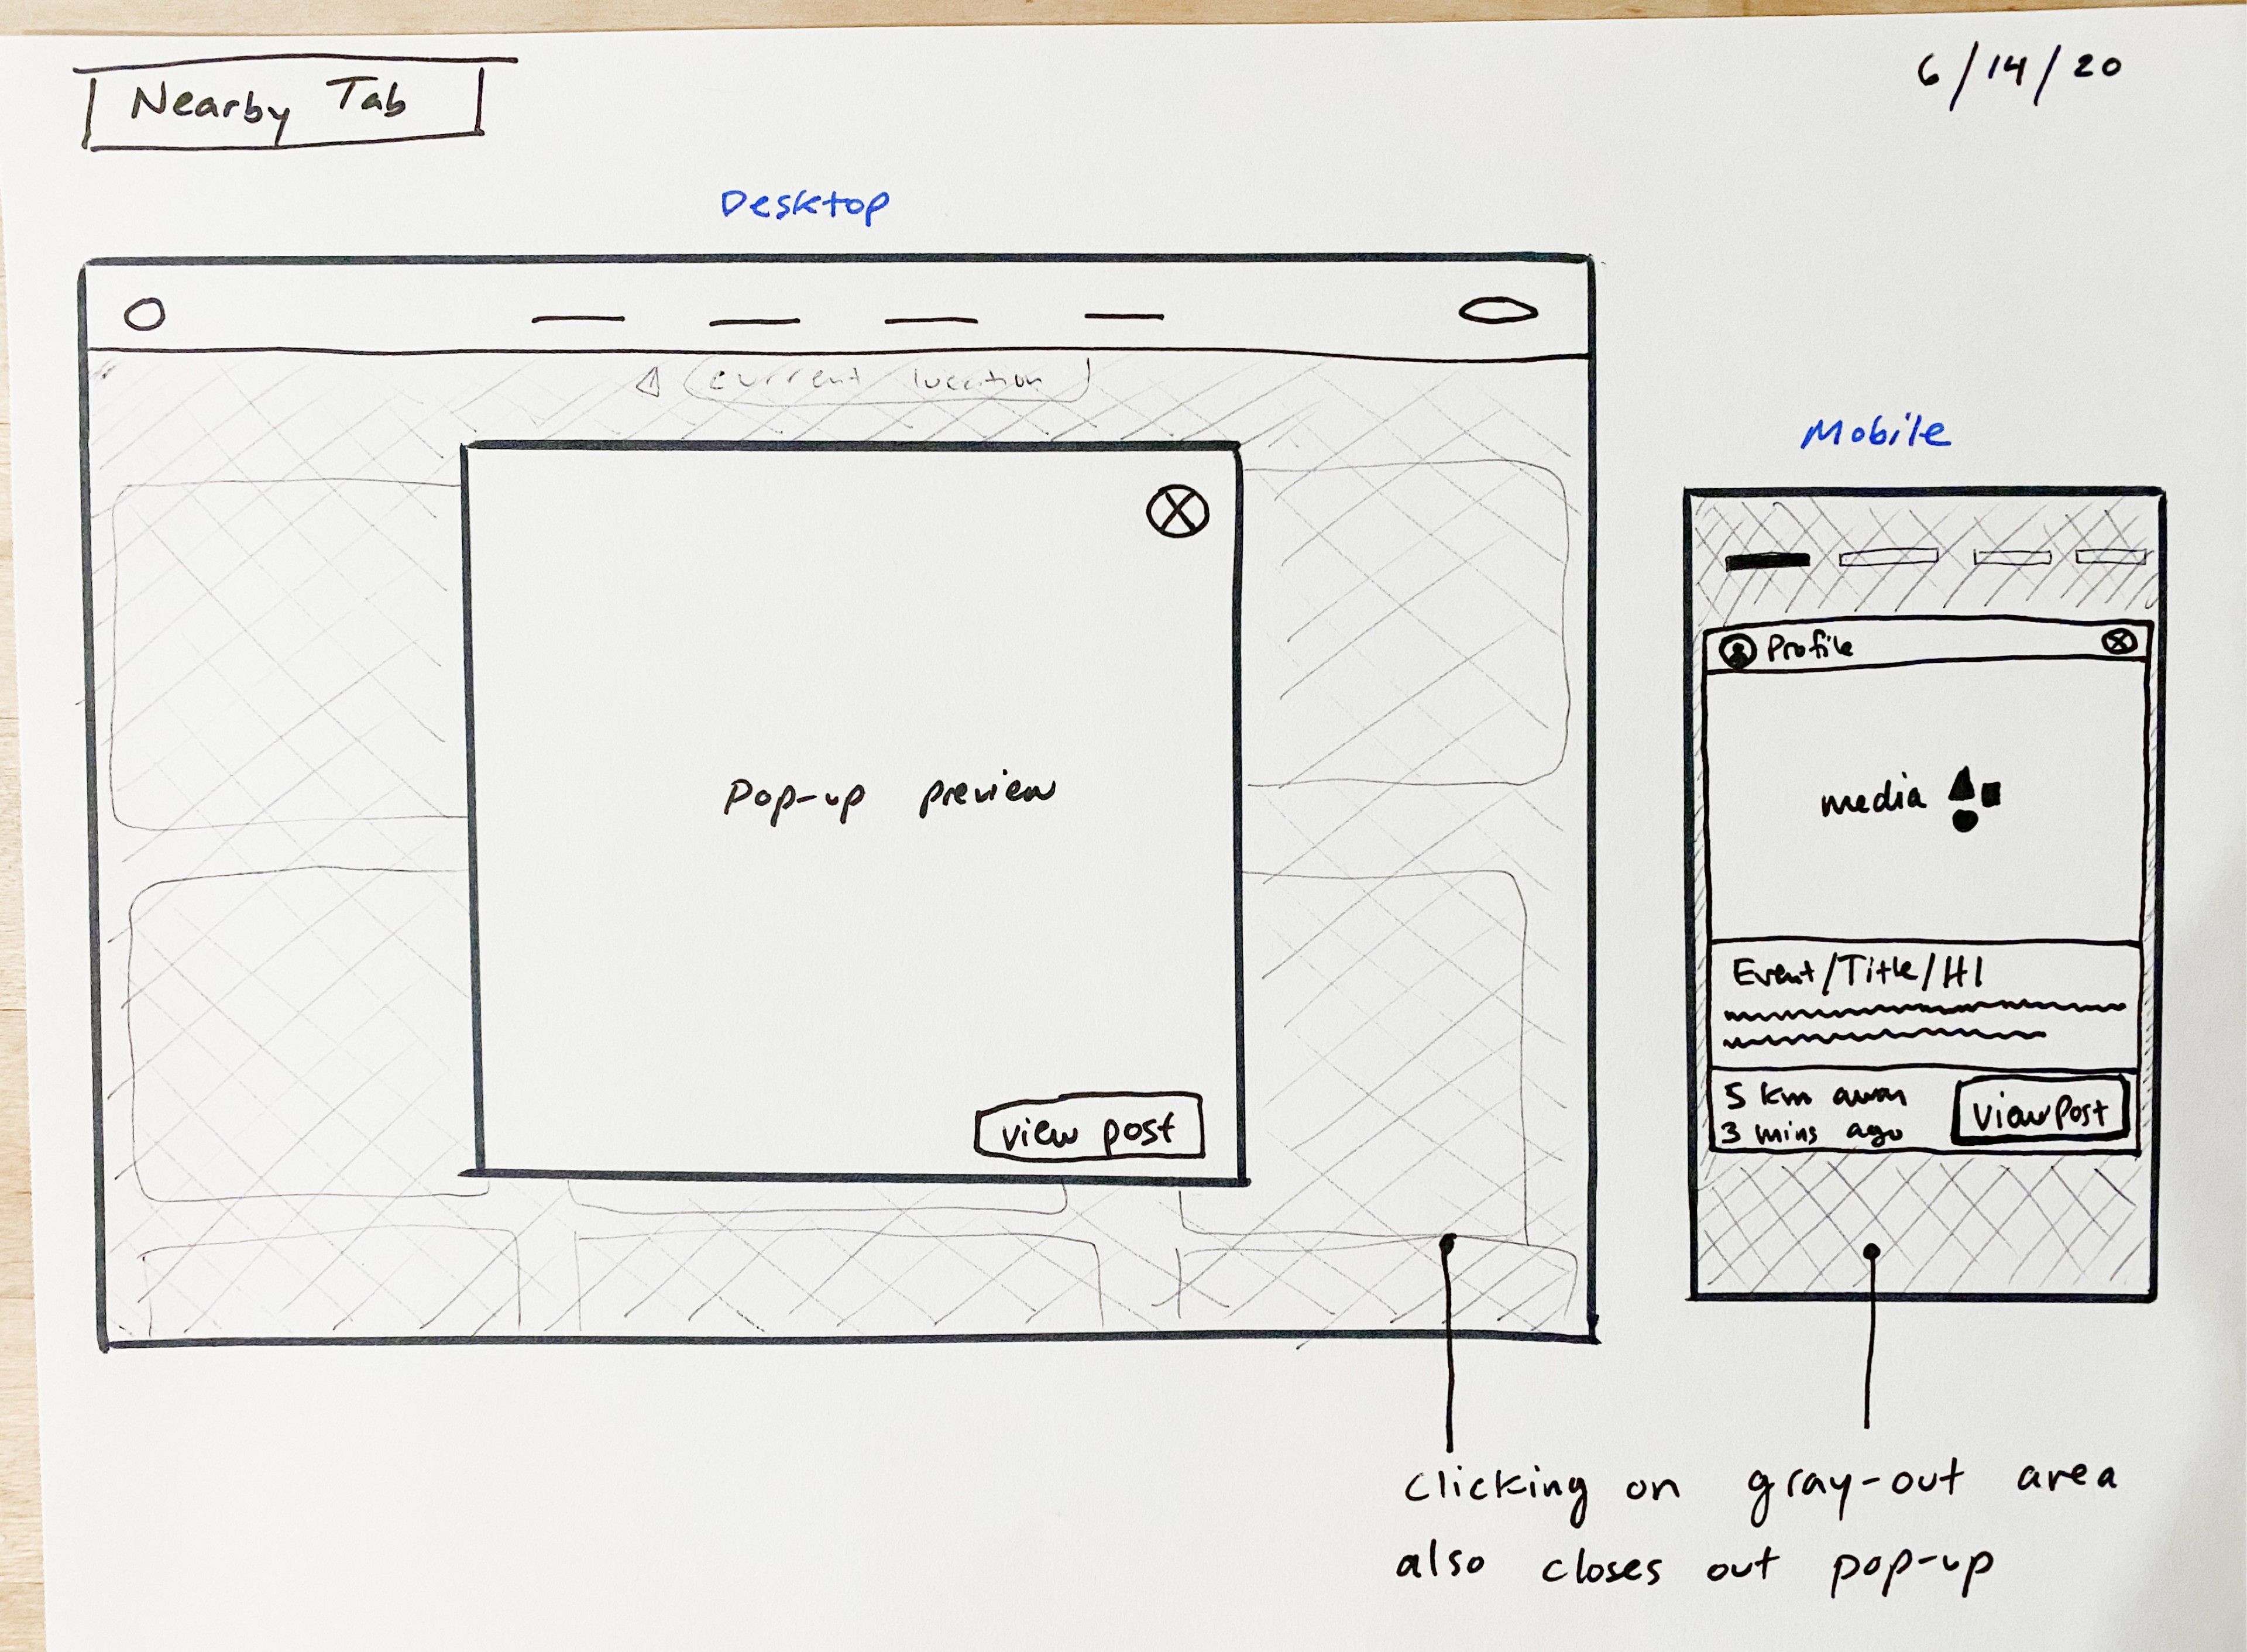 Nearby Tab
6/14/20
Desktop
current location
Pop-up preview
view post
Mobile
Profile
media
Event/Title/H1
5 km away
3 mins ago
View Post
clicking on gray-out area
also closes out pop-up